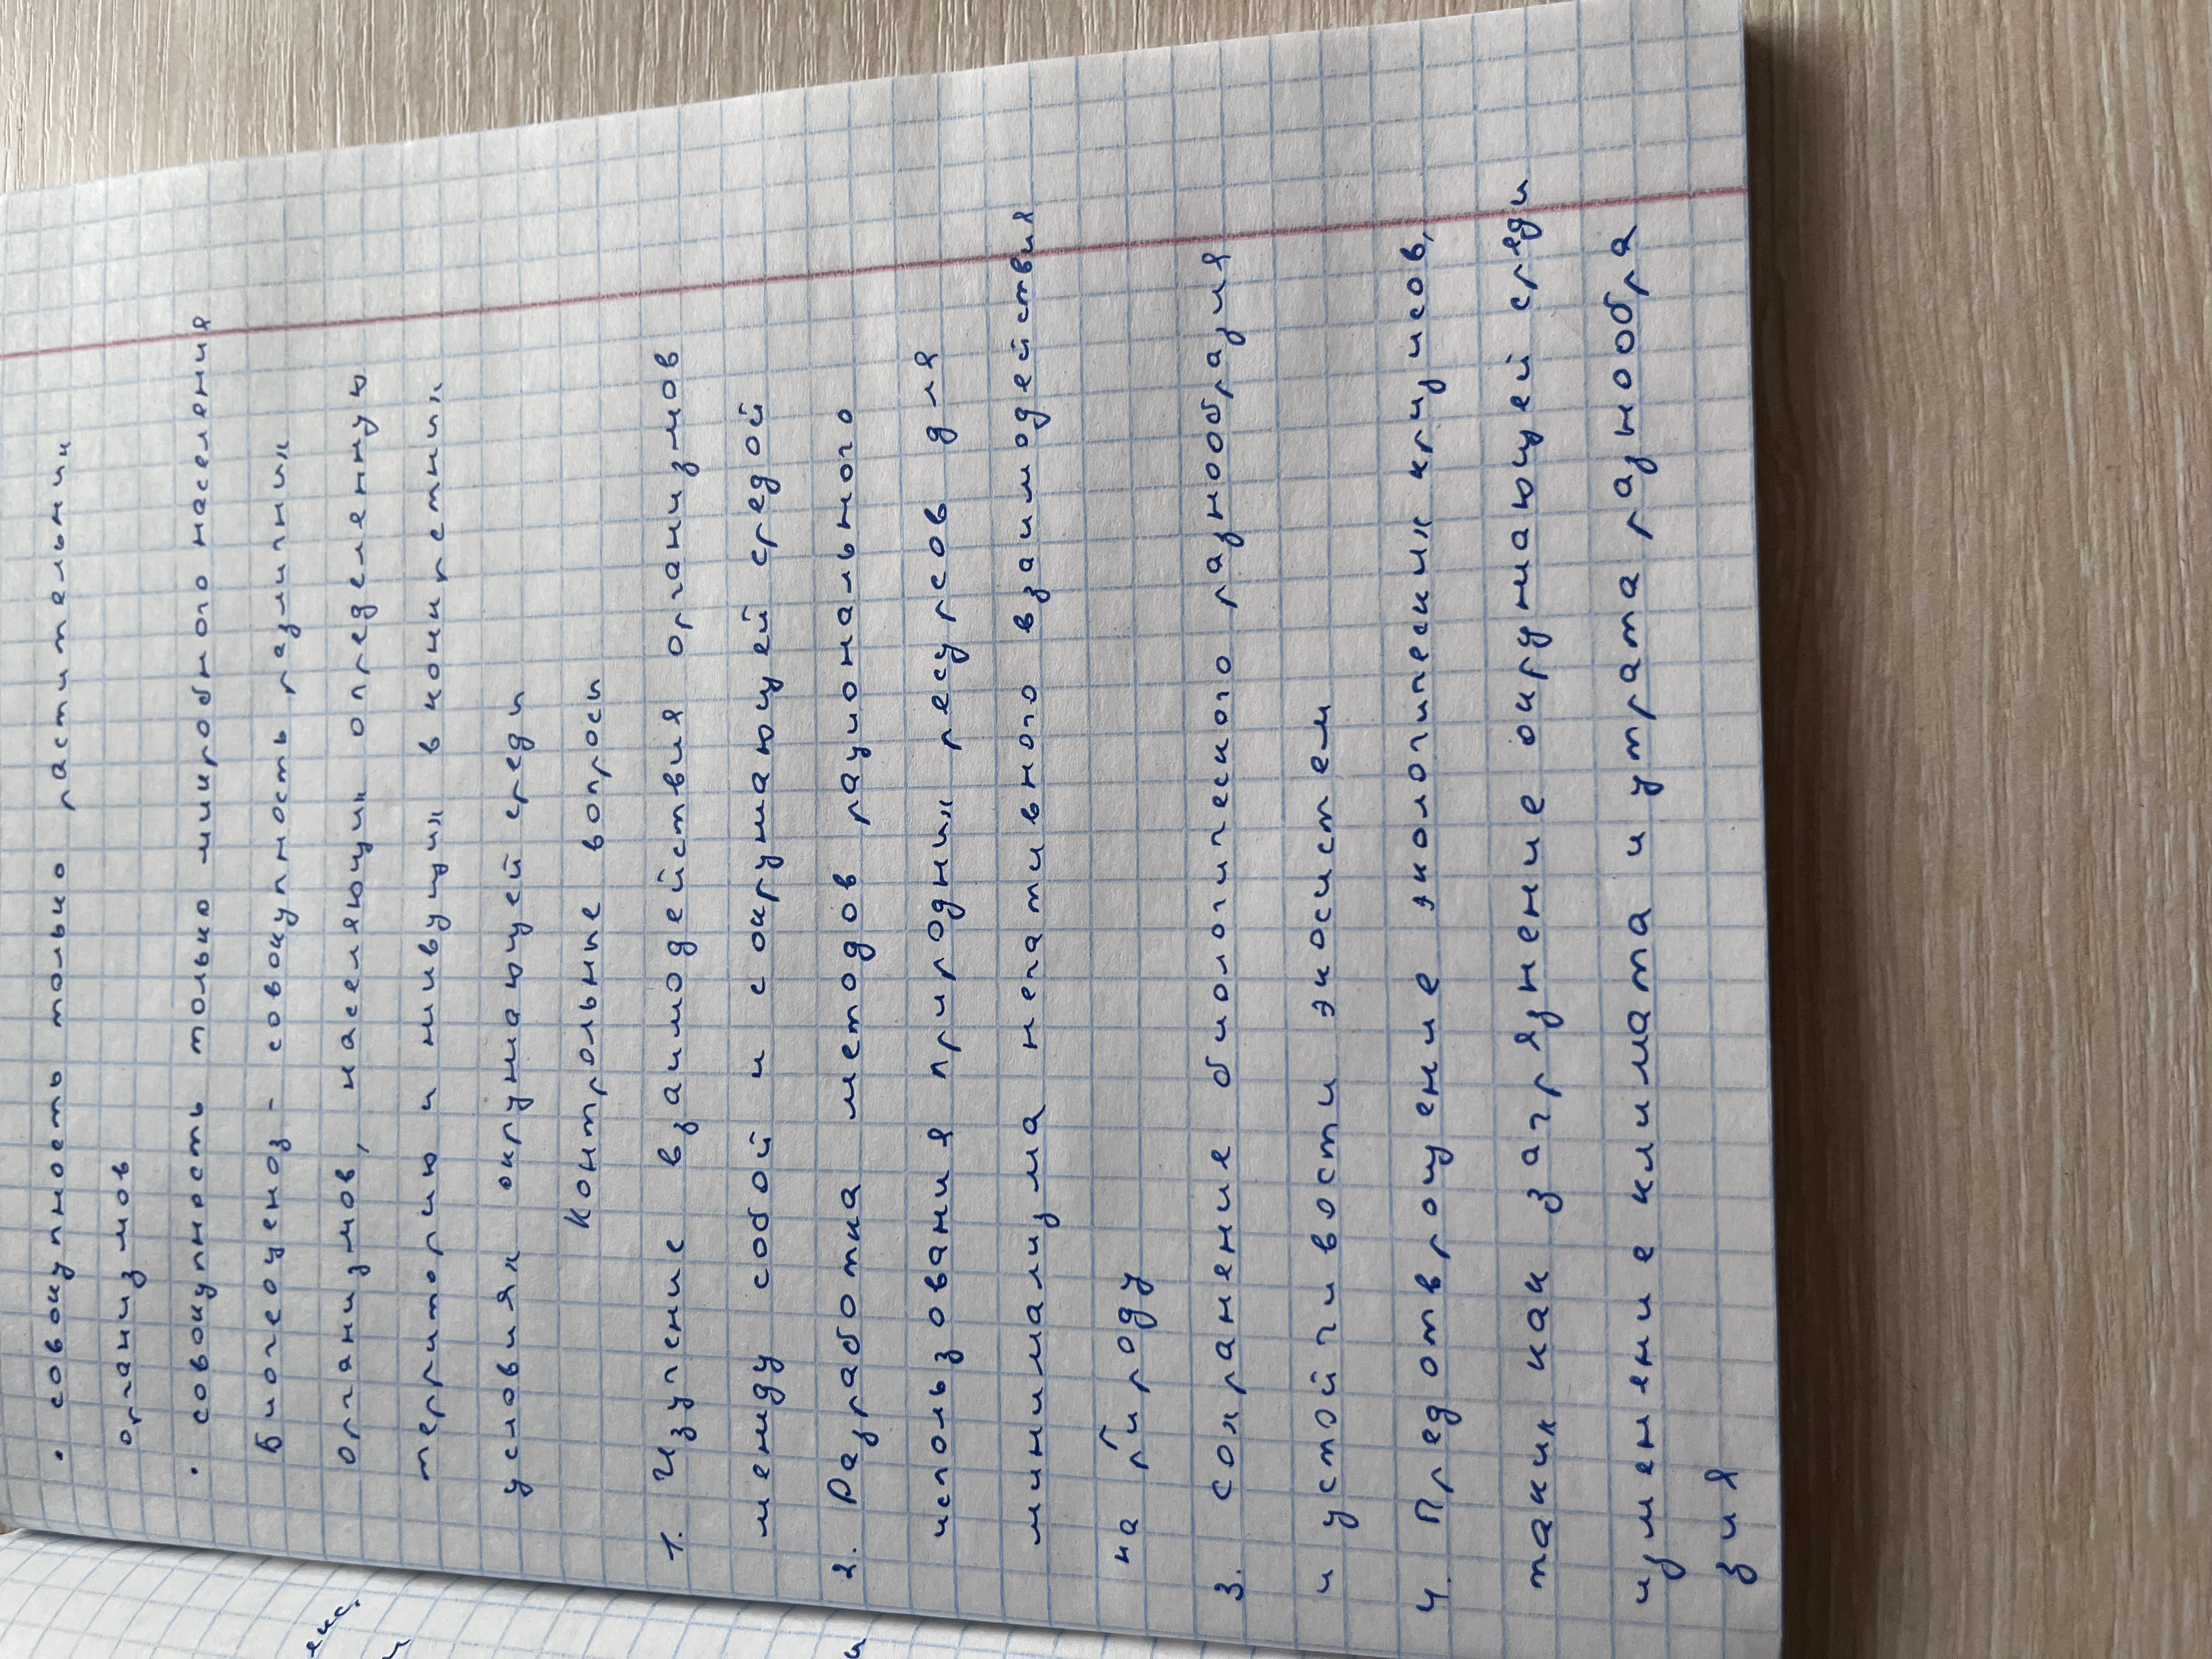 · совокупность только растительных
организмов
· совокупность только микробного населения
Биогеоценоз - совокупность различных
организмов, населяющих определенную
территорию и живущих в конкретных
условиях окружающей среды
Контрольные вопросы
1. Изучение взаимодействия организмов
между собой и с окружающей средой
2. Разработка методов рационального
использования природных ресурсов для
минимализма негативного взаимодействия
на природу
3. Сохранение биологического разнообразия
и устойчивости экосистем
4. Предотврощение экологических кризисов,
таких как загрязнение окружающей среды
изменение климата и утрата разнообра
зия